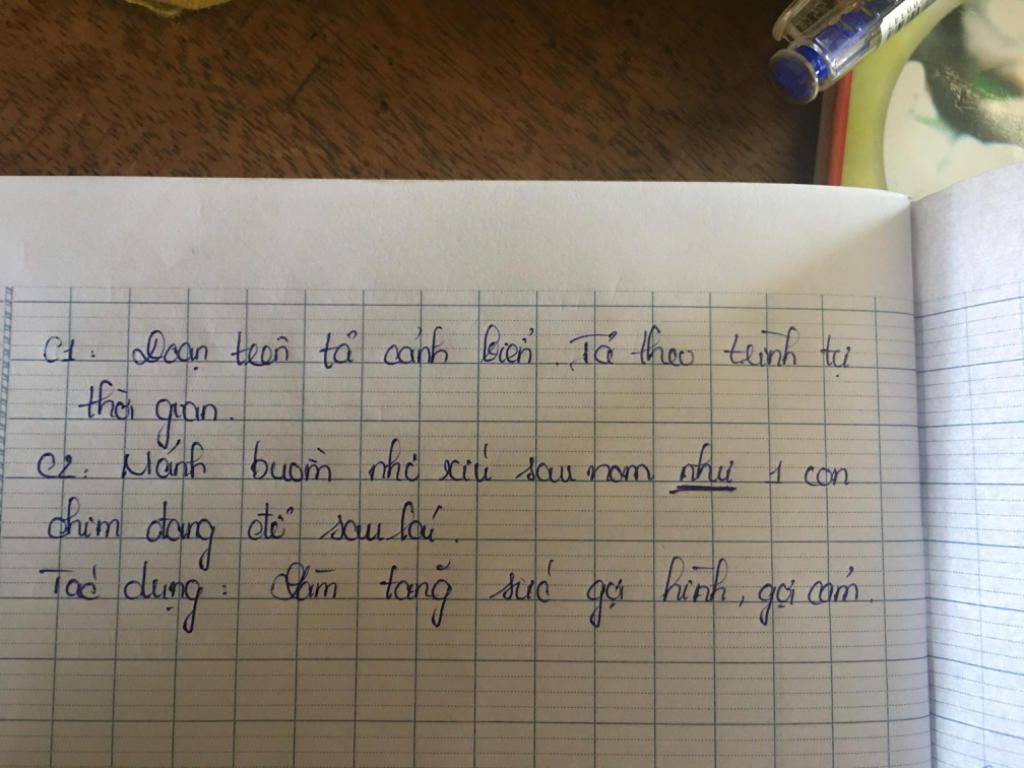 C1: Đoạn trên tả cảnh biển. Tả theo trình tự
thời gian.
C2: Mảnh buồm nhỏ xíu sau nom như 1 con
chim đang đỗ sau lái.
Tác dụng: Làm tăng sức gợi hình, gợi cảm.